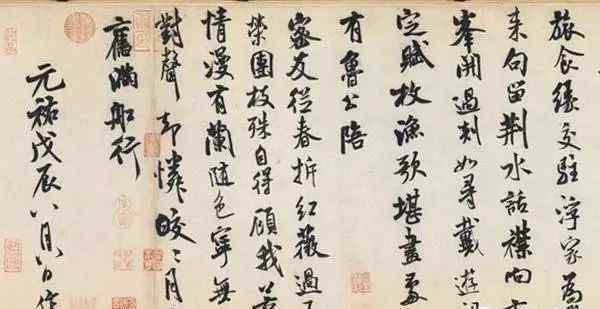 旅食緣交駐浮家為
来句留荆水話襟向
峯開過剡如尋戴遊
定賦枚漁歌堪畫處
有魯公陪
密友從春拆紅薇過
榮團枝殊自得顧我若
情漫有蘭随色寧無
對聲却憐皎〻月
舊滿船行
元祐戊辰八月八日作